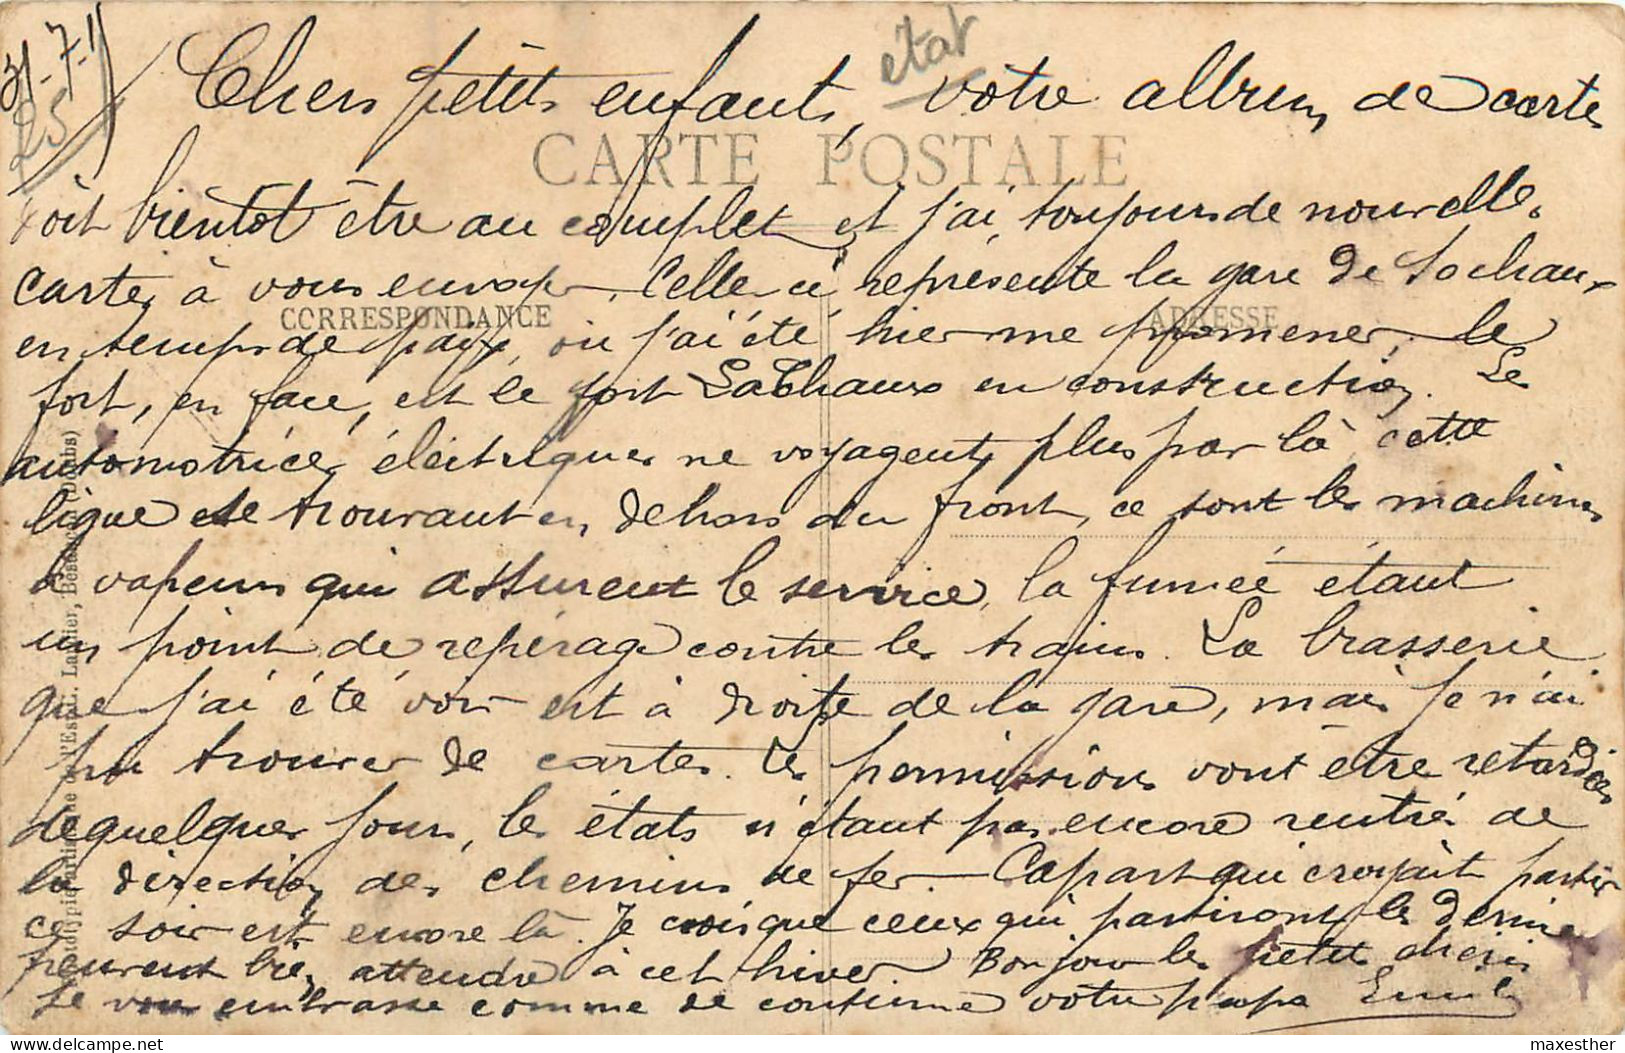 31-7-1
25
état
Chers petits enfants, votre album de cartes
CARTE POSTALE
doit bientôt être au complet et j'ai toujours de nouvelles
cartes à vous envoyer. Celle ci représente la gare de Sochaux
CORRESPONDANCE
ADRESSE
en temps de paix, où j'ai été hier me promener, le
fort, en face, est le fort Lachaux en construction. Les
automotrices électriques ne voyagent plus par là cette
ligne se trouvant en dehors du front, ce sont les machines
à vapeurs qui assurent le service, la fumée étant
un point de repérage contre les trains. La brasserie
que j'ai été voir est à droite de la gare, mais je n'ai
pu trouver de cartes. Les permissions vont être retardées
de quelques jours, les états n'étant pas encore rentrés de
la direction des chemins de fer. Capart qui croyait partir
ce soir est encore là. Je crois que ceux qui partiront les derniers
peuvent bien attendre à cet hiver Bonjour les petits chéris
Je vous embrasse comme de coutume votre papa Emile
Phototypie artistique de l'Est C. Lardier, Besançon (Doubs)
maxesther